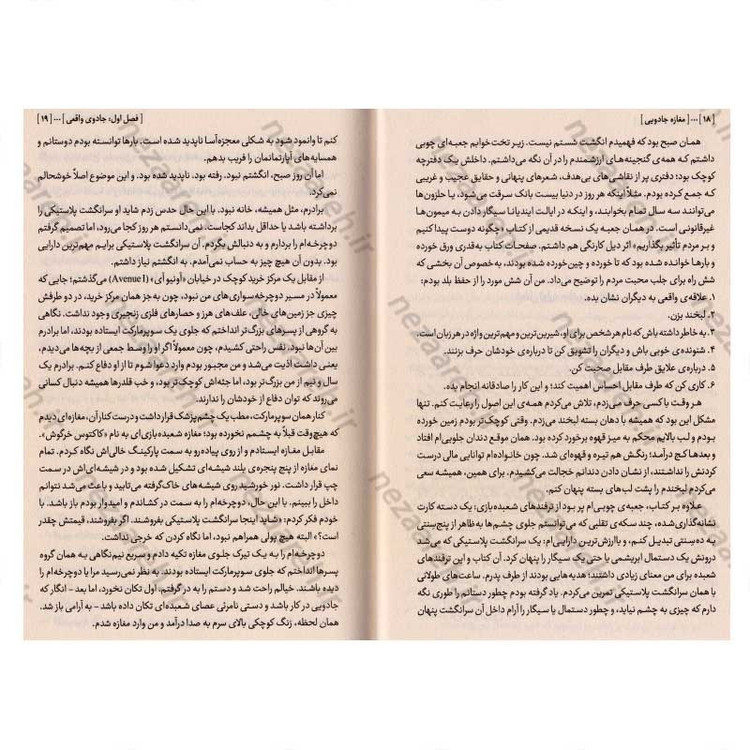 [ ۱۸ ] ... [ مغازه جادویی ]
همان صبح بود که فهمیدم انگشت شستم نیست. زیر تخت‌خوابم جعبه‌ای چوبی
داشتم که همه‌ی گنجینه‌های ارزشمندم را در آن نگه می‌داشتم. داخلش یک دفترچه
کوچک بود؛ دفتری پر از نقاشی‌های بی‌هدف، شعرهای پنهانی و حقایق عجیب و غریبی
که جمع کرده بودم. مثلاً اینکه هر روز در دنیا بیست بانک سرقت می‌شود، یا حلزون‌ها
می‌توانند سه سال تمام بخوابند، و اینکه در ایالت ایندیانا سیگار دادن به میمون‌ها
غیرقانونی است. در همان جعبه یک نسخه قدیمی از کتاب «چگونه دوست پیدا کنیم
و بر مردم تأثیر بگذاریم» اثر دیل کارنگی هم داشتم. صفحات کتاب به‌قدری ورق خورده
و بارها خوانده شده بود که تا خورده و چین‌خورده شده بودند، به‌خصوص آن بخشی که
شش راه برای جلب محبت مردم را توضیح می‌داد. من آن شش مورد را از حفظ بلد بودم:
۱. علاقه‌ی واقعی به دیگران نشان بده.
۲. لبخند بزن.
۳. به خاطر داشته باش که نام هر شخص برای او، شیرین‌ترین و مهم‌ترین واژه در هر زبان است.
۴. شنونده‌ی خوبی باش و دیگران را تشویق کن تا درباره‌ی خودشان حرف بزنند.
۵. درباره‌ی علایق طرف مقابل صحبت کن.
۶. کاری کن که طرف مقابل احساس اهمیت کند؛ و این کار را صادقانه انجام بده.
هر وقت با کسی حرف می‌زدم، تلاش می‌کردم همه‌ی این اصول را رعایت کنم. تنها
مشکل این بود که همیشه با دهان بسته لبخند می‌زدم. وقتی کوچک‌تر بودم، زمین خورده
بودم و لب بالایم محکم به میز قهوه برخورد کرده بود. همان موقع دندان جلویی‌ام افتاد
و بعدها کج درآمد؛ رنگش هم تیره و قهوه‌ای شد. چون خانواده‌ام توانایی مالی درست
کردنش را نداشتند، از نشان دادن دندانم خجالت می‌کشیدم. برای همین، همیشه سعی
می‌کردم لبخندم را پشت لب‌های بسته پنهان کنم.
علاوه بر کتاب، جعبه‌ی چوبی‌ام پر بود از ترفندهای شعبده‌بازی: یک دسته کارت
نشانه‌گذاری‌شده، چند سکه‌ی تقلبی که می‌توانستم جلوی چشم‌ها به ظاهر از پنج‌سنتی
به ده‌سنتی تبدیل کنم، و باارزش‌ترین دارایی‌ام، یک سرانگشت پلاستیکی که می‌شد
درونش یک دستمال ابریشمی یا حتی یک سیگار را پنهان کرد. آن کتاب و این ترفندهای
شعبده برای من معنای زیادی داشتند؛ هدیه‌هایی بودند از طرف پدرم. ساعت‌های طولانی
با همان سرانگشت پلاستیکی تمرین می‌کردم. یاد گرفته بودم چطور دستانم را طوری نگه
دارم که چیزی به چشم نیاید، و چطور دستمال یا سیگار را آرام داخل آن سرانگشت پنهان
[ فصل اول، جادوی واقعی ] ... [ ۱۹ ]
کنم تا وانمود شود به شکلی معجزه‌آسا ناپدید شده است. بارها توانسته بودم دوستانم و
همسایه‌های آپارتمانمان را فریب بدهم.
اما آن روز صبح، انگشتم نبود. رفته بود. ناپدید شده بود. و این موضوع اصلاً خوشحالم
نمی‌کرد.
برادرم، مثل همیشه، خانه نبود. با این حال حدس زدم شاید او سرانگشت پلاستیکی را
برداشته باشد یا حداقل بداند کجاست. نمی‌دانستم هر روز کجا می‌رود، اما تصمیم گرفتم
دوچرخه‌ام را بردارم و به دنبالش بگردم. آن سرانگشت پلاستیکی برایم مهم‌ترین دارایی
بود. بدون آن هیچ چیز به حساب نمی‌آمدم. به انگشتم نیاز داشتم.
از مقابل یک مرکز خرید کوچک در خیابان «اَونیو اَی» (Avenue I) می‌گذشتم؛ جایی که
معمولاً در مسیر دوچرخه‌سواری‌های من نبود، چون به‌جز همان مرکز خرید، در دو طرفش
چیزی جز زمین‌های خالی، علف‌های هرز و حصارهای فلزی زنجیری وجود نداشت. نگاهی
به گروهی از پسرهای بزرگ‌تر انداختم که جلوی یک سوپرمارکت ایستاده بودند، اما برادرم
بین آن‌ها نبود. نفس راحتی کشیدم، چون معمولاً اگر او را وسط جمعی از بچه‌ها می‌دیدم،
یعنی داشت اذیت می‌شد و من مجبور بودم وارد دعوا شوم تا از او دفاع کنم. برادرم یک
سال و نیم از من بزرگ‌تر بود، اما جثه‌اش کوچک‌تر بود، و خب قلدرها همیشه دنبال کسانی
می‌روند که توان دفاع از خودشان را ندارند.
کنار همان سوپرمارکت، مطب یک چشم‌پزشک قرار داشت و درست کنار آن، مغازه‌ای دیدم
که هیچ‌وقت قبلاً به چشمم نخورده بود؛ مغازه شعبده‌بازی‌ای به نام «کاکتوس خرگوش».
مقابل مغازه ایستادم و از روی پیاده‌رو به سمت پارکینگ خالی‌اش نگاه کردم. تمام
نمای مغازه از پنج پنجره‌ی بلند شیشه‌ای تشکیل شده بود و در شیشه‌ای‌اش در سمت
چپ قرار داشت. نور خورشید روی شیشه‌های خاک‌گرفته می‌تابید و باعث می‌شد نتوانم
داخل را ببینم. با این حال، دوچرخه‌ام را به سمت در کشاندم و امیدوار بودم باز باشد. با
خودم فکر کردم: «شاید اینجا سرانگشت پلاستیکی بفروشند. اگر بفروشند، قیمتش چقدر
است؟» البته هیچ پولی همراهم نبود، اما نگاه کردن که خرجی نداشت.
دوچرخه‌ام را به یک تیرک جلوی مغازه تکیه دادم و سریع نیم‌نگاهی به همان گروه
پسرها انداختم که جلوی سوپرمارکت ایستاده بودند. به نظر نمی‌رسید مرا یا دوچرخه‌ام را
دیده باشند. خیالم راحت شد و دستم را به در گرفتم. اول تکان نخورد، اما بعد - انگار که
جادویی در کار باشد و دستی نامرئی عصای شعبده‌ای تکان داده باشد - به آرامی باز شد.
همان لحظه، زنگ کوچکی بالای سرم به صدا درآمد و من وارد مغازه شدم.
nezaareh.ir